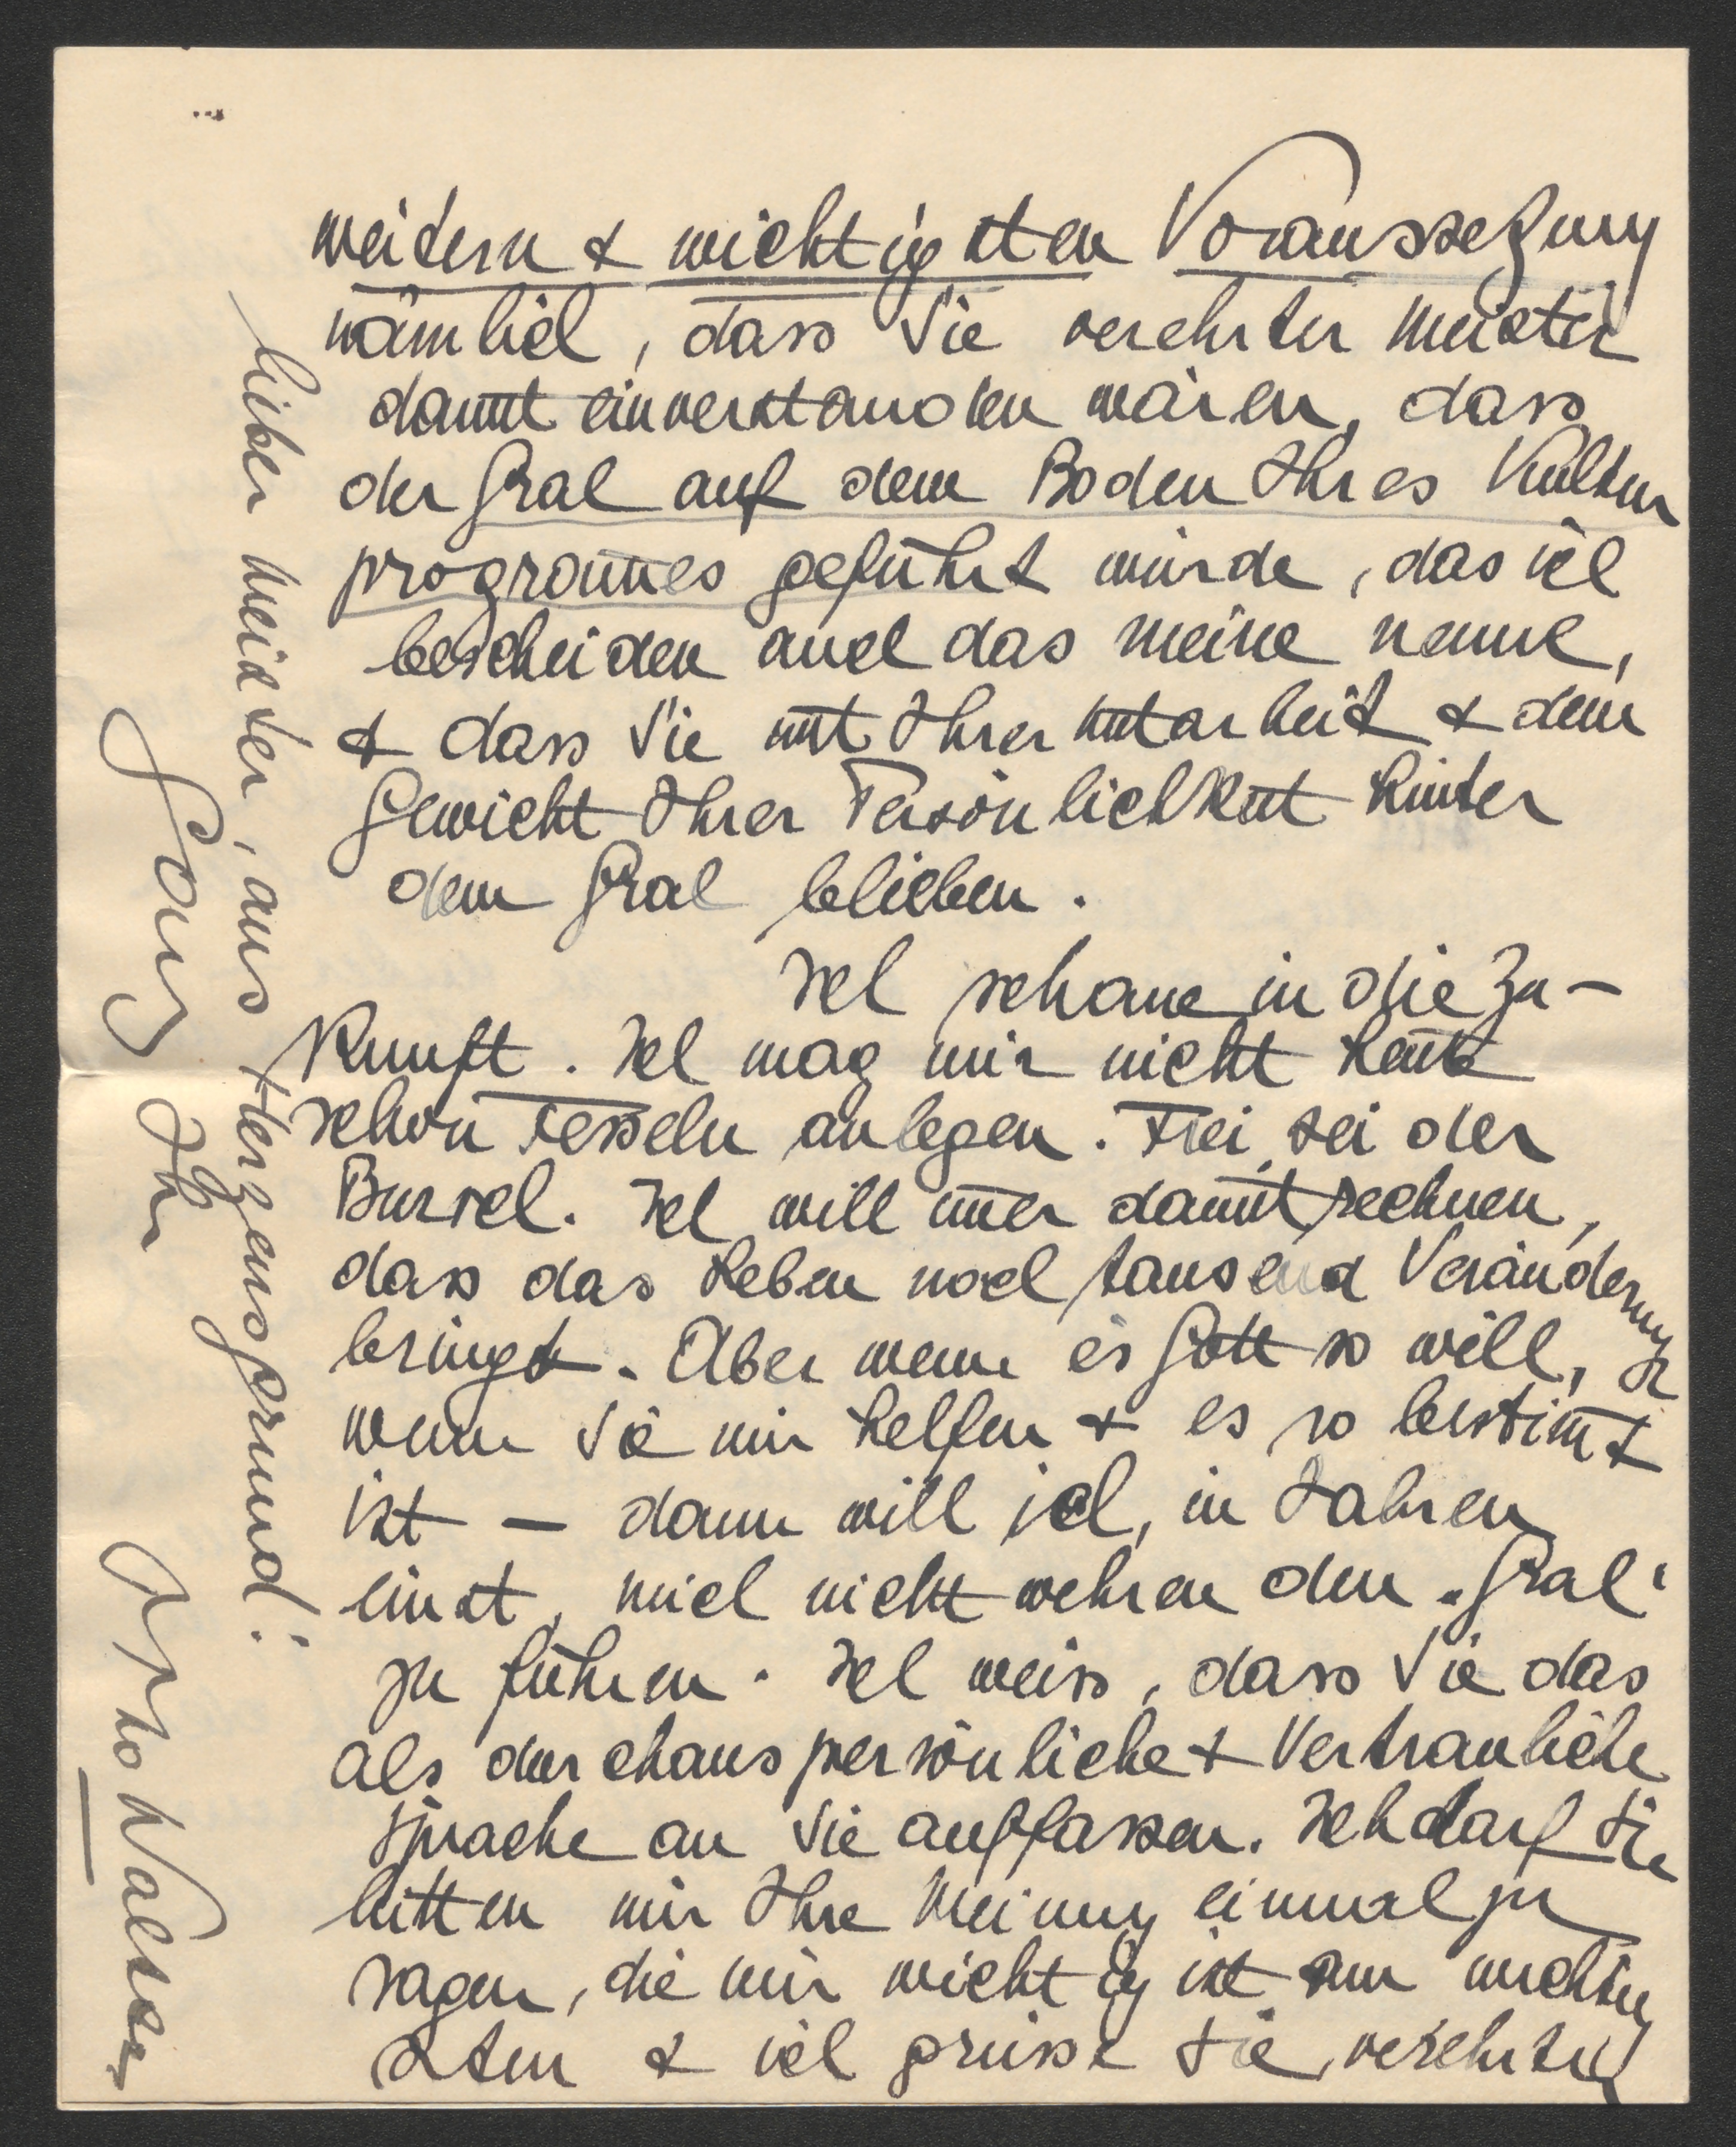 weitern & wichtigsten Voraussetzung
nämlich, dass Sie verehrter Meister
damit einverstanden wären, dass
der Gral auf dem Boden Ihres Kultur
programm̄es geführt würde, das ich
bescheiden auch das meine nenne,
& dass Sie mit Ihrer Mitarbeit & dem
Gewicht Ihrer Persönlichkeit hinter
dem Gral blieben.
Ich schaue in die Zu-
kunft. Ich mag mir nicht heute
schon Fesseln anlegen. Frei sei der
Bursch. Ich will im̄er damit rechnen,
dass das Leben noch tausend Veränderung
bringt. Aber wenn es Gott so will,
wenn Sie mir helfen & es so bestim̄t
ist — dann will ich, in Jahren
einst, mich nicht wehren den „Gral“
zu führen. Ich weiss, dass Sie das
als durchaus persönliche & vertrauliche
Sprache an Sie auffassen. Ich darf Sie
bitten mir Ihre Meinung einmal zu
sagen, die mir wichtig ist am wichtig
sten & ich grüsse Sie, verehrter
lieber Meister, aus Herzensgrund!
Ganz Ihr
Otto Walter